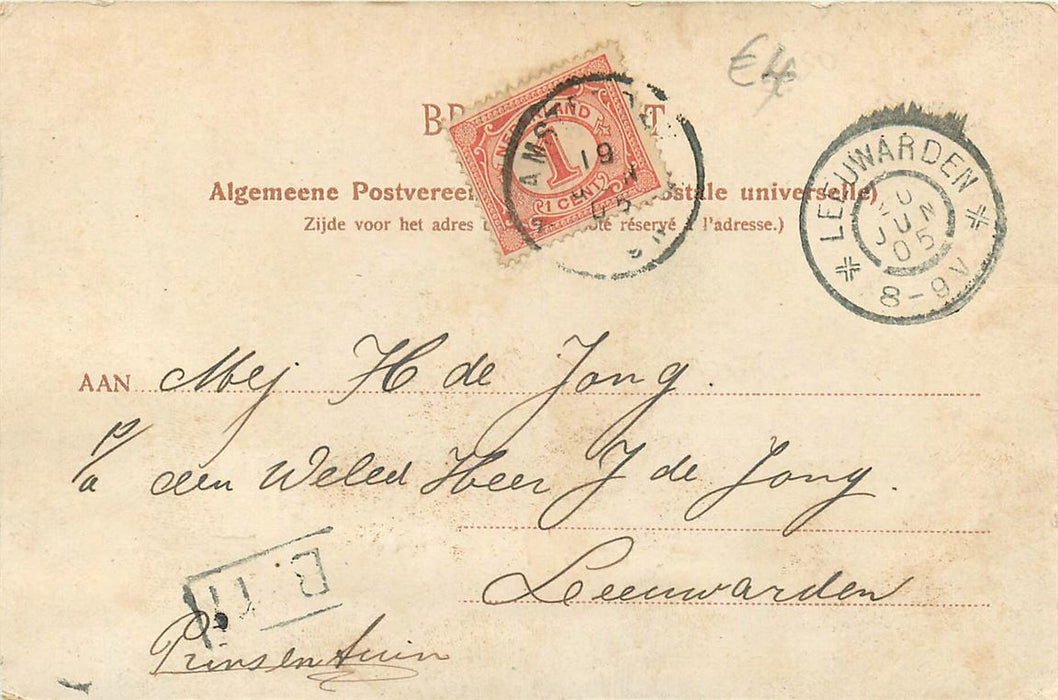 €4
Algemeene universelle)
Zijde voor het adres réservé à l'adresse.)
NEDERLAND
1
1 CENT
19
LEEUWARDEN
JU
05
8-9V
AAN Mej H de Jong.
p/a den Weled Heer J de Jong.
Leeuwarden
Prinsentuin